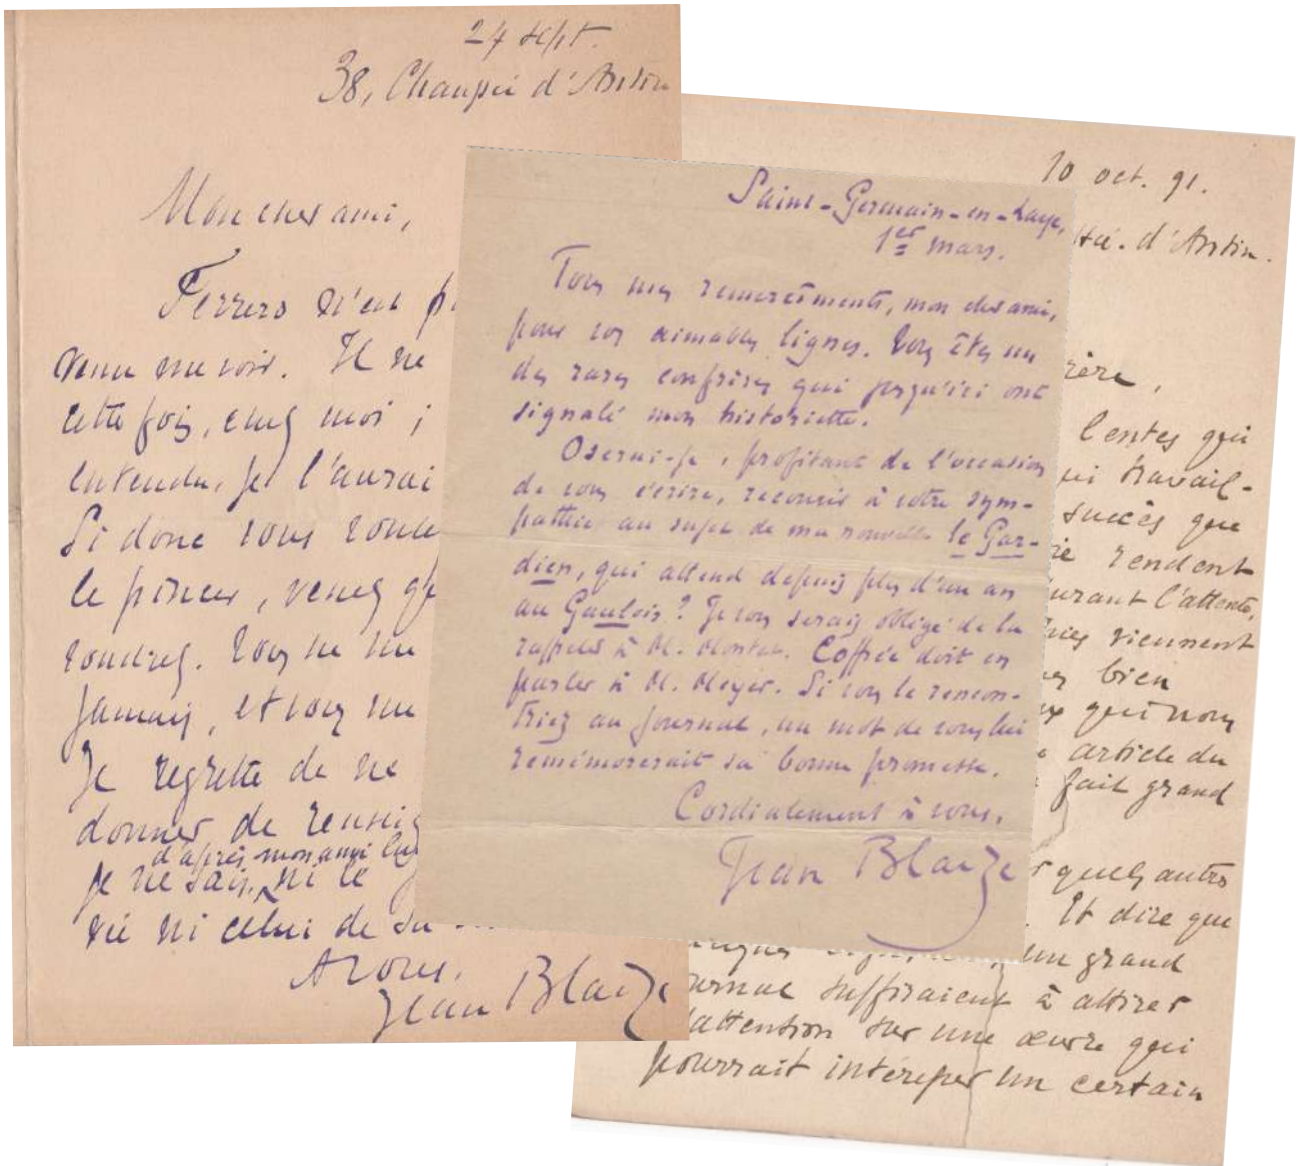 24 sept.
38, Chaussée d'Antin
Mon cher ami,
Ferrero n'est p
venu me voir. Il ne
cette fois, chez moi ;
entendu, je l'aurai
Si donc vous voule
le pincer, venez q
voudrez. Vous ne me
jamais, et vous me
Je regrette de ne
donner de renseig
d'après mon ami
je ne sais, ni le
ni celui de sa
A vous.
Jean Blaize
Saint-Germain-en-Laye,
1er mars.
Tous mes remerciements, mon cher ami,
pour vos aimables lignes. Vous êtes un
des rares confrères qui jusqu'ici ont
signalé mon historiette.
Oserai-je, profitant de l'occasion
de vous écrire, recourir à votre sym-
pathie au sujet de ma nouvelle le Gar-
dien, qui attend depuis plus d'un an
au Gaulois ? Je vous serais obligé de la
rappeler à M. Coppée doit en
parler à M. Meyer. Si vous le rencon-
triez au journal, un mot de vous lui
remémorerait sa bonne promesse.
Cordialement à vous,
Jean Blaize
10 oct. 91.
ssée. d'Antin.
rère,
lentes qui
ui travail-
succès que
ie rendent
urant l'attente,
viennent
bien
qui nous
article du
fait grand
quelq autres
. Et dire que
lignes un grand
journal suffiraient à attirer
l'attention sur une œuvre qui
pourrait intéresser un certain